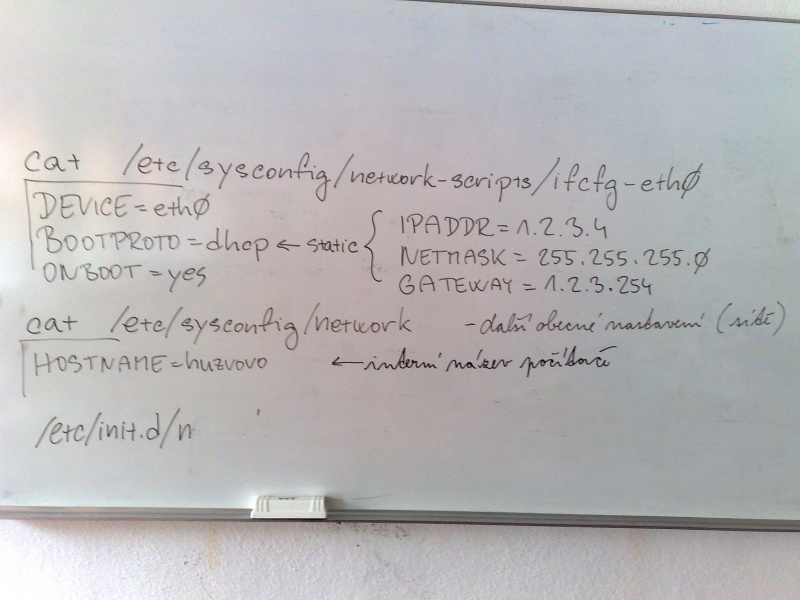 cat /etc/sysconfig/network-scripts/ifcfg-eth0
DEVICE=eth0
BOOTPROTO=dhcp ← static { IPADDR=1.2.3.4
ONBOOT=yes
NETMASK=255.255.255.0
GATEWAY=1.2.3.254
cat /etc/sysconfig/network -další obecné nastavení (sítě)
HOSTNAME=huzvovo ← interní název počítače
/etc/init.d/n